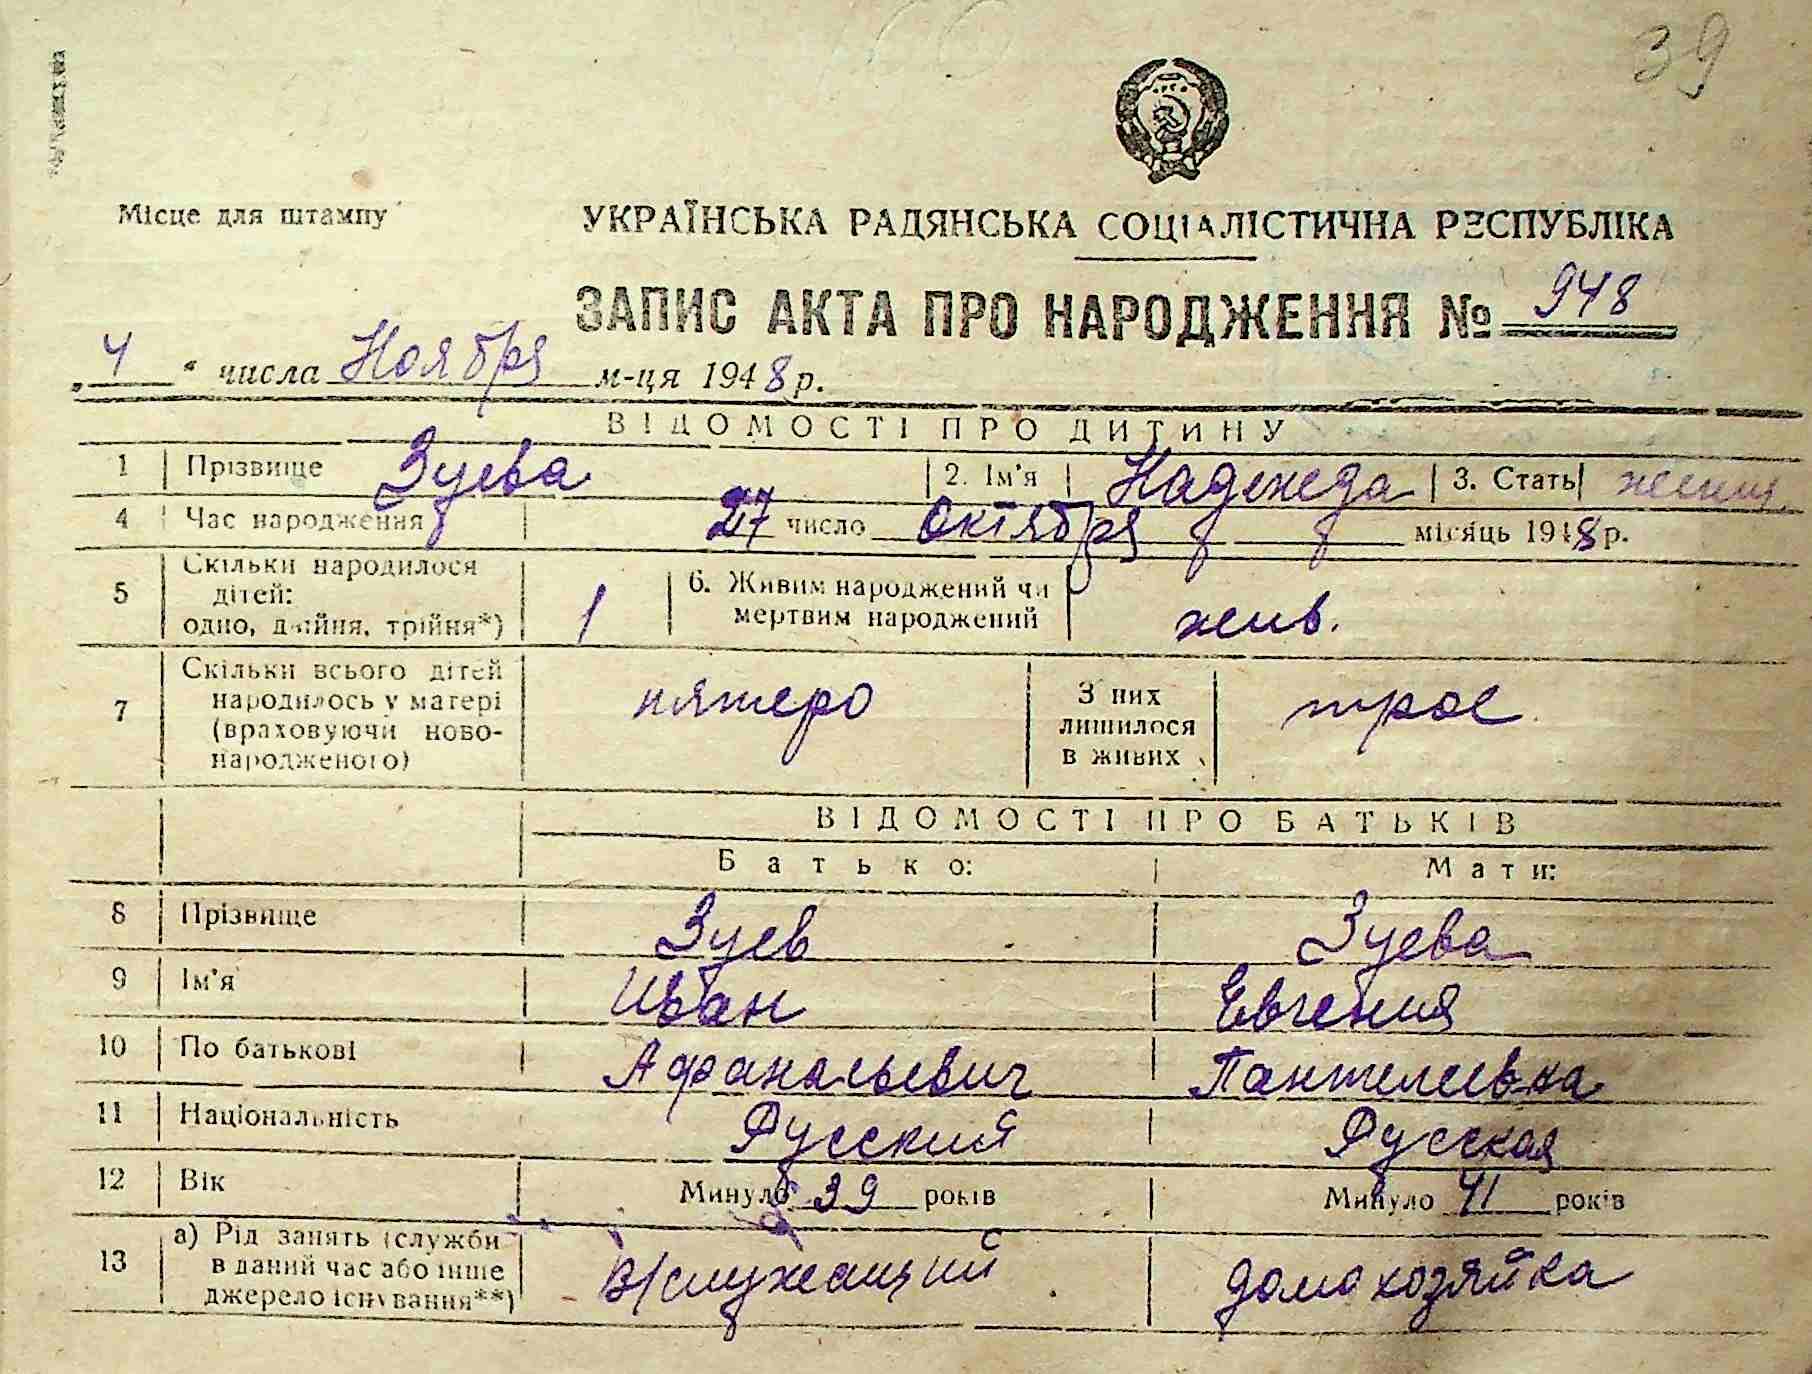 39
Місце для штампу
УКРАЇНСЬКА РАДЯНСЬКА СОЦІАЛІСТИЧНА РЕСПУБЛІКА
ЗАПИС АКТА ПРО НАРОДЖЕННЯ № 948
„4“ числа Ноября м-ця 1948 р.
ВІДОМОСТІ ПРО ДИТИНУ
1 Прізвище Зуева 2. Ім'я Надежда 3. Стать женщ.
4 Час народження 27 число Октября місяць 1948 р.
5 Скільки народилося дітей: одно, двійня, трійня*) 1 6. Живим народжений чи мертвим народжений жив.
7 Скільки всього дітей народилось у матері (враховуючи новонародженого) пятеро З них лишилося в живих трое
ВІДОМОСТІ ПРО БАТЬКІВ
Батько: Мати:
8 Прізвище Зуев Зуева
9 Ім'я Иван Евгения
10 По батькові Афанасьевич Пантелеевна
11 Національність Русский Русская
12 Вік Минуло 39 років Минуло 41 років
13 а) Рід занять (служби в даний час або інше джерело існування**) в/служащий домохозяйка